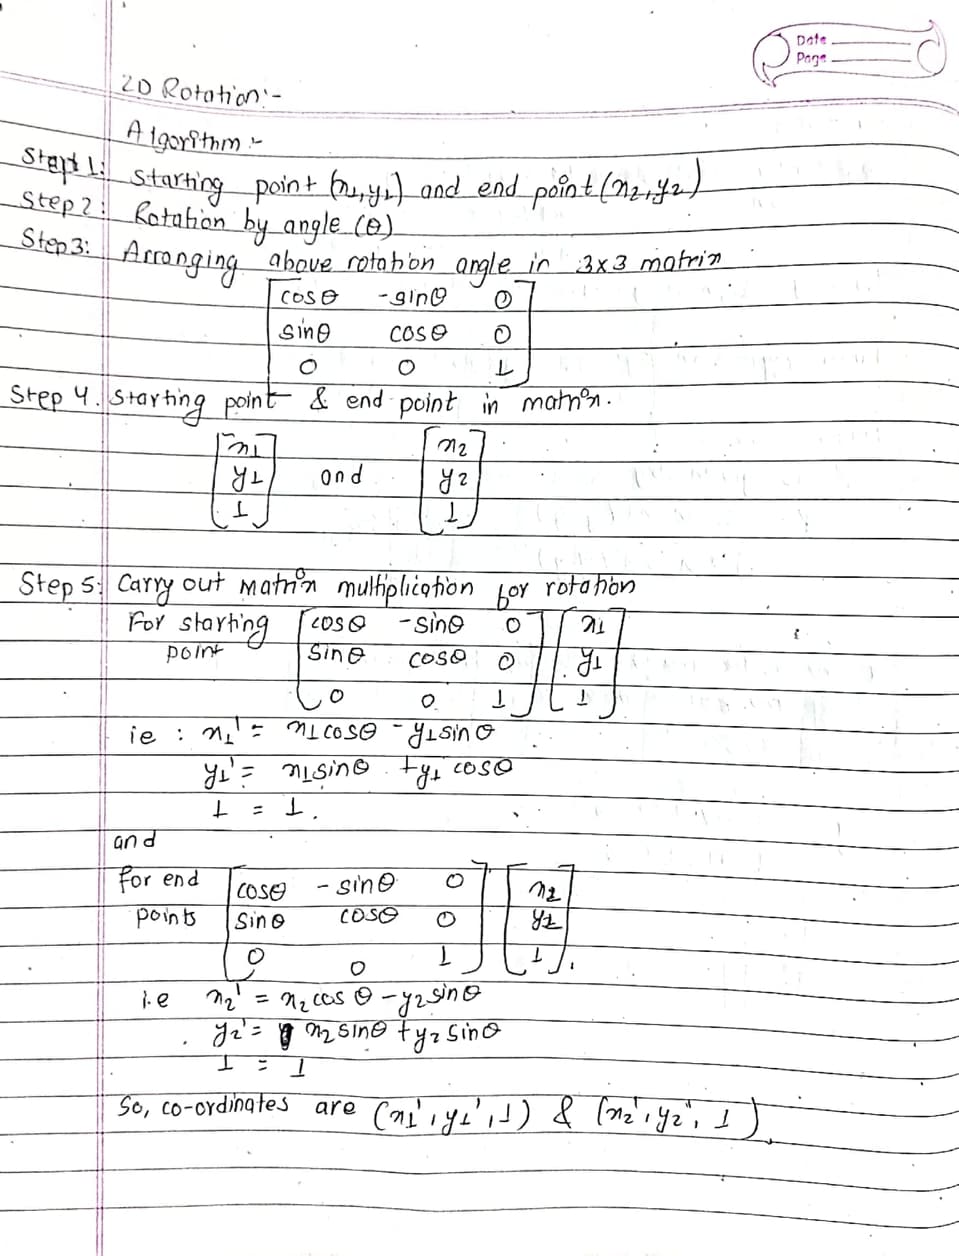 Date
Page
2D Rotation:-
Algorithm:-
Step 1: Starting point (x1, y1) and end point (x2, y2)
Step 2: Rotation by angle (θ)
Step 3: Arranging above rotation angle in 3x3 matrix
cosθ -sinθ 0
sinθ cosθ 0
0 0 1
Step 4. Starting point & end point in matrix.
x1 x2
y1 and y2
1 1
Step 5: Carry out matrix multiplication for rotation
For starting cosθ -sinθ 0 x1
point sinθ cosθ 0 y1
0 0 1 1
ie : x1' = x1cosθ - y1sinθ
y1' = x1sinθ + y1 cosθ
1 = 1.
and
for end cosθ - sinθ 0 x2
points sinθ cosθ 0 y2
0 0 1 1
i.e x2' = x2 cos θ - y2 sinθ
y2' = x2 sinθ + y2 sinθ
1 = 1
So, co-ordinates are (x1', y1', 1) & (x2', y2', 1)